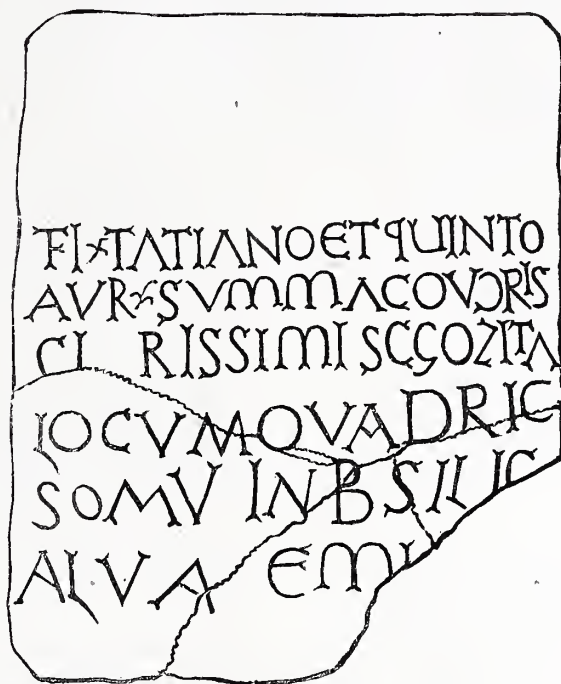 FI×TATIANO ET QUINTO
AVR×SVMMACO VƆRIS
CL RISSIMIS CÇOZITA
LOCVM QVADRIC
SOMV IN BSILIC
ALVA EMI